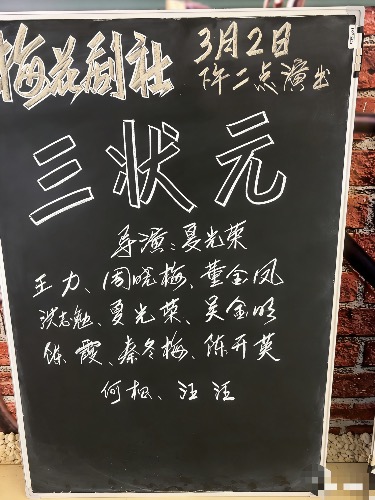 梅花剧社
3月2日
下午二点演出
三状元
导演:夏光荣
王力、周晓梅、董金凤
洪志勉、夏光荣、吴金明
陈霞、秦冬梅、陈开英
何枫、汪汪